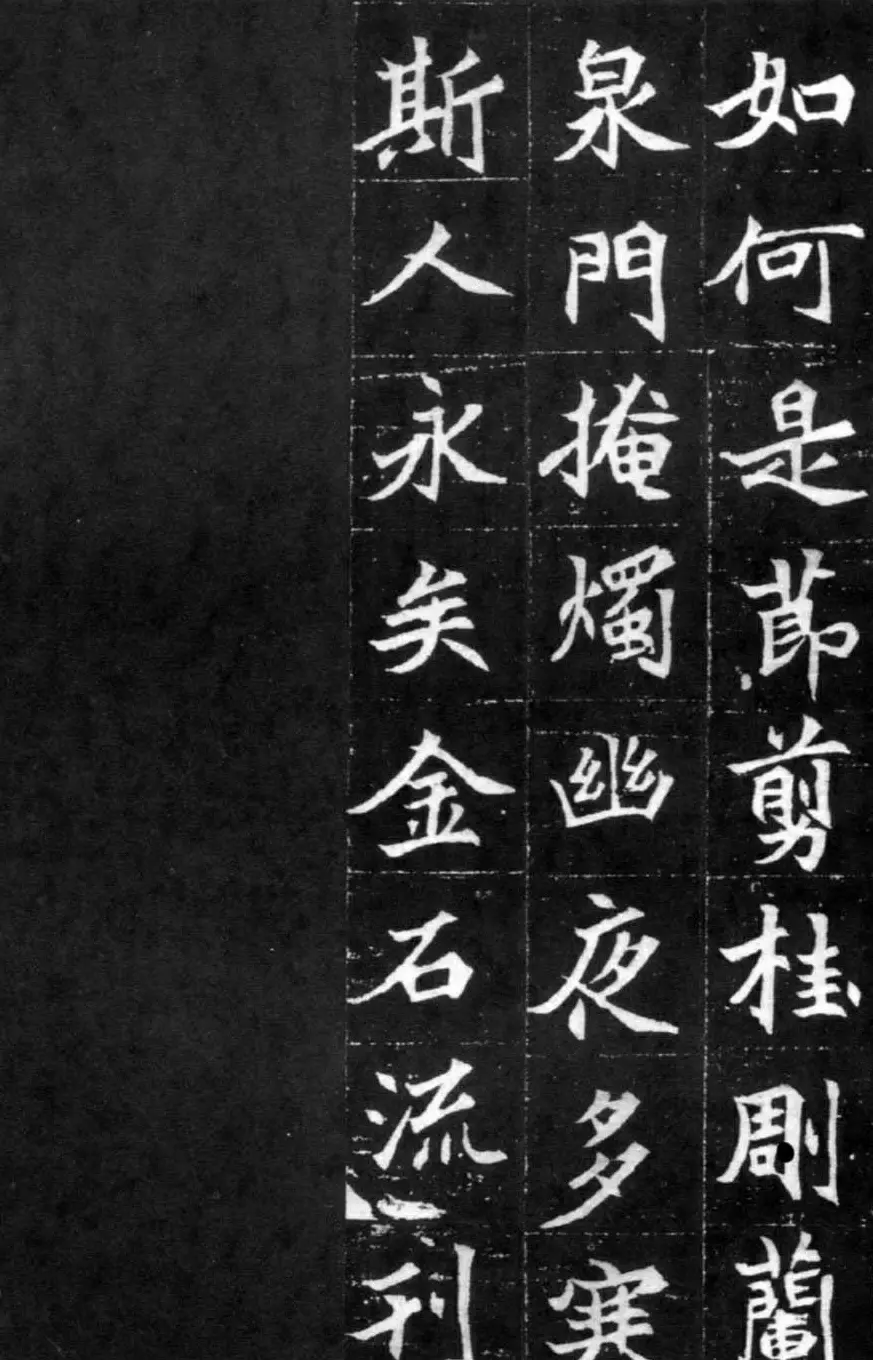 如何是莭剪桂劀蘭
泉門掩燭幽夜多寒
斯人永矣金石流刊